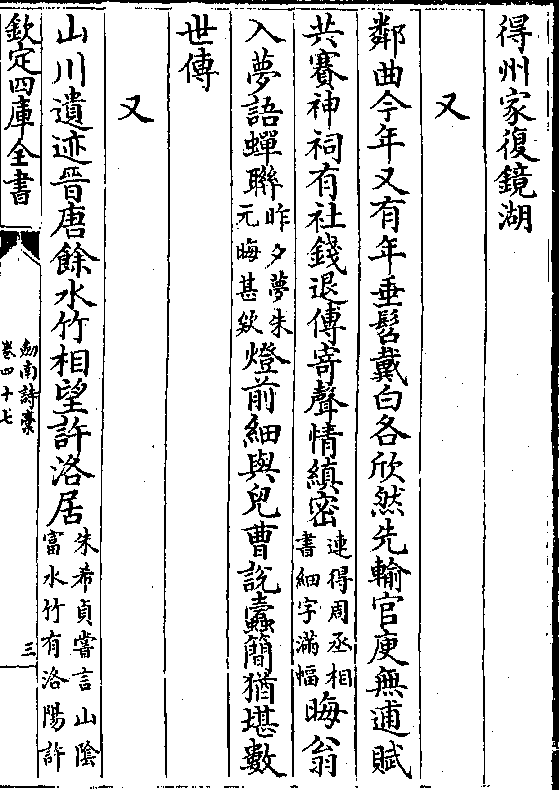 得州家復鏡湖
又
鄰曲今年又有年垂髫戴白各欣然先輸官庾無逋賦
共賽神祠有社錢退傅寄聲情縝密連得周丞相書細字滿幅晦翁
入夢語蟬聯昨夕夢朱元晦甚欵燈前細與兒曹說蠹簡猶堪數
世傳
又
山川遺迹晉唐餘水竹相望許洛居朱希貞嘗言山陰富水竹有洛陽許
欽定四庫全書
劍南詩稾
卷四十七
三